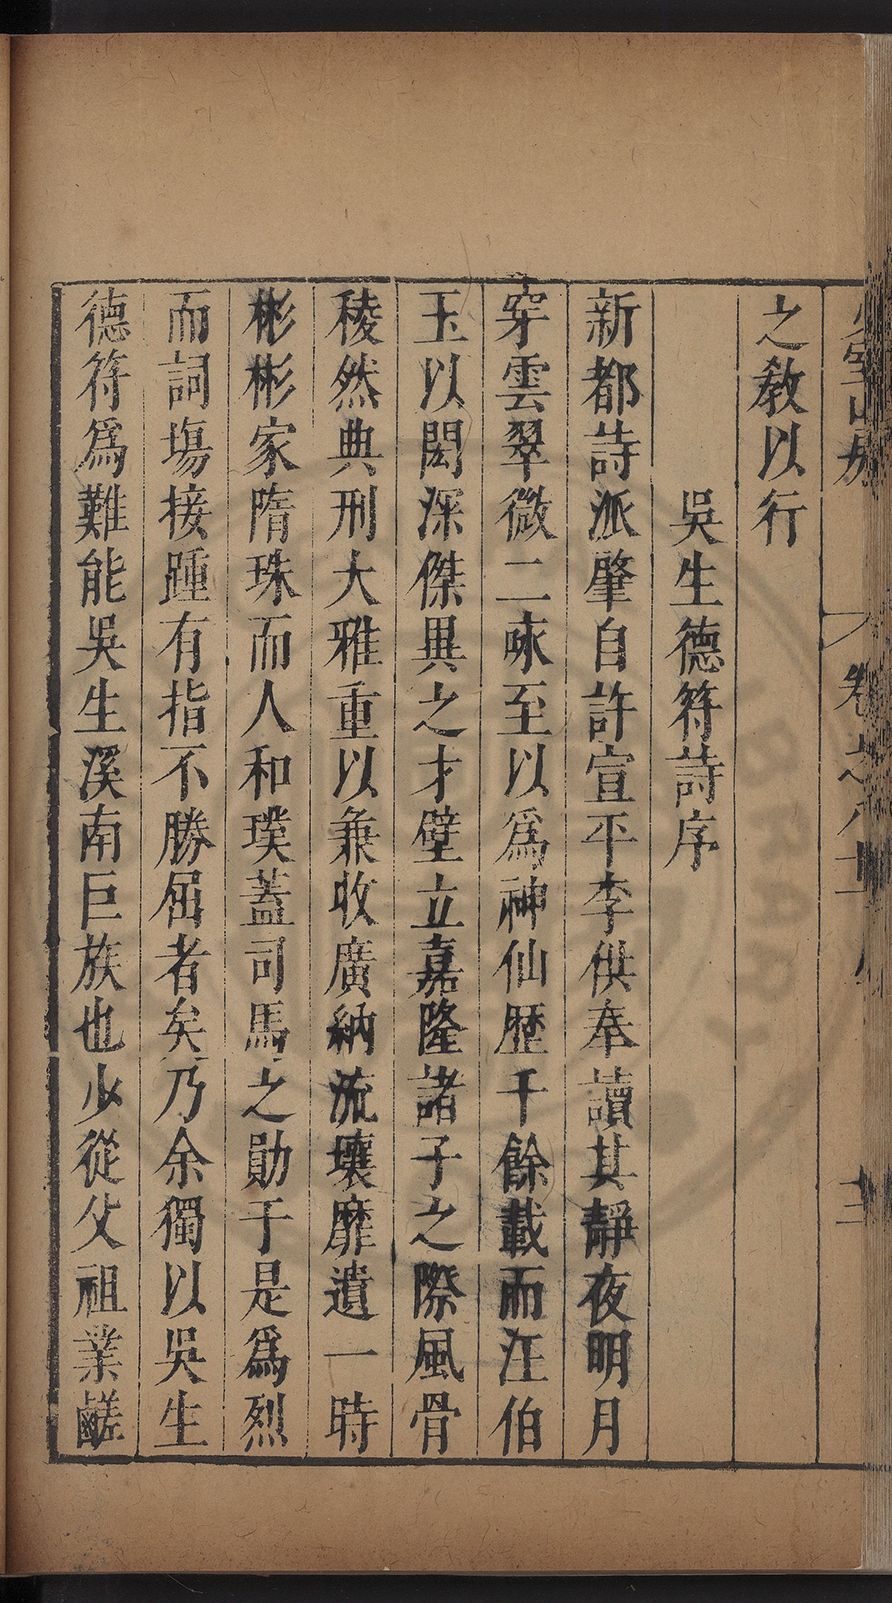 少室山房 卷之八十 三
之敎以行
吳生德符詩序
新都詩派肇自許宣平李供奉讀其靜夜明月
穿雲翠微二咏至以爲神仙歷千餘載而汪伯
玉以閎深傑異之才壁立嘉隆諸子之際風骨
稜然典刑大雅重以兼收廣納流壤靡遺一時
彬彬家隋珠而人和璞蓋司馬之勛于是爲烈
而詞塲接踵有指不勝屈者矣乃余獨以吳生
德符爲難能吳生溪南巨族也少從父祖業鹺